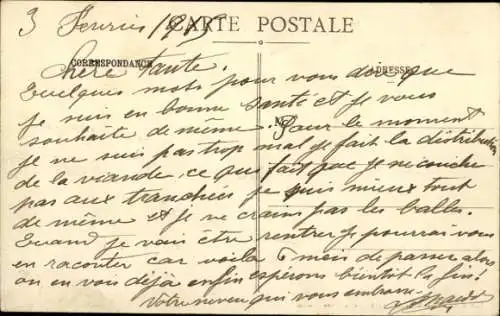 3 Fevrier 1915 CARTE POSTALE
CORRESPONDANCE ADRESSE
Chère Tante.
Quelques mots pour vous dire que
je suis en bonne santé et je vous
souhaite de même. Pour le moment
je ne suis pas trop mal je fait la distribution
de la viande, ce qui fait que je ne couche
pas aux tranchées je suis mieux tout
de même et je ne crains pas les balles.
Quand je vais être rentrer je pourrai vous
en raconter car voila 6 mois de passer alors
on en vous déjà enfin espérons bientôt la fin!
Votre neveu qui vous embrasse.